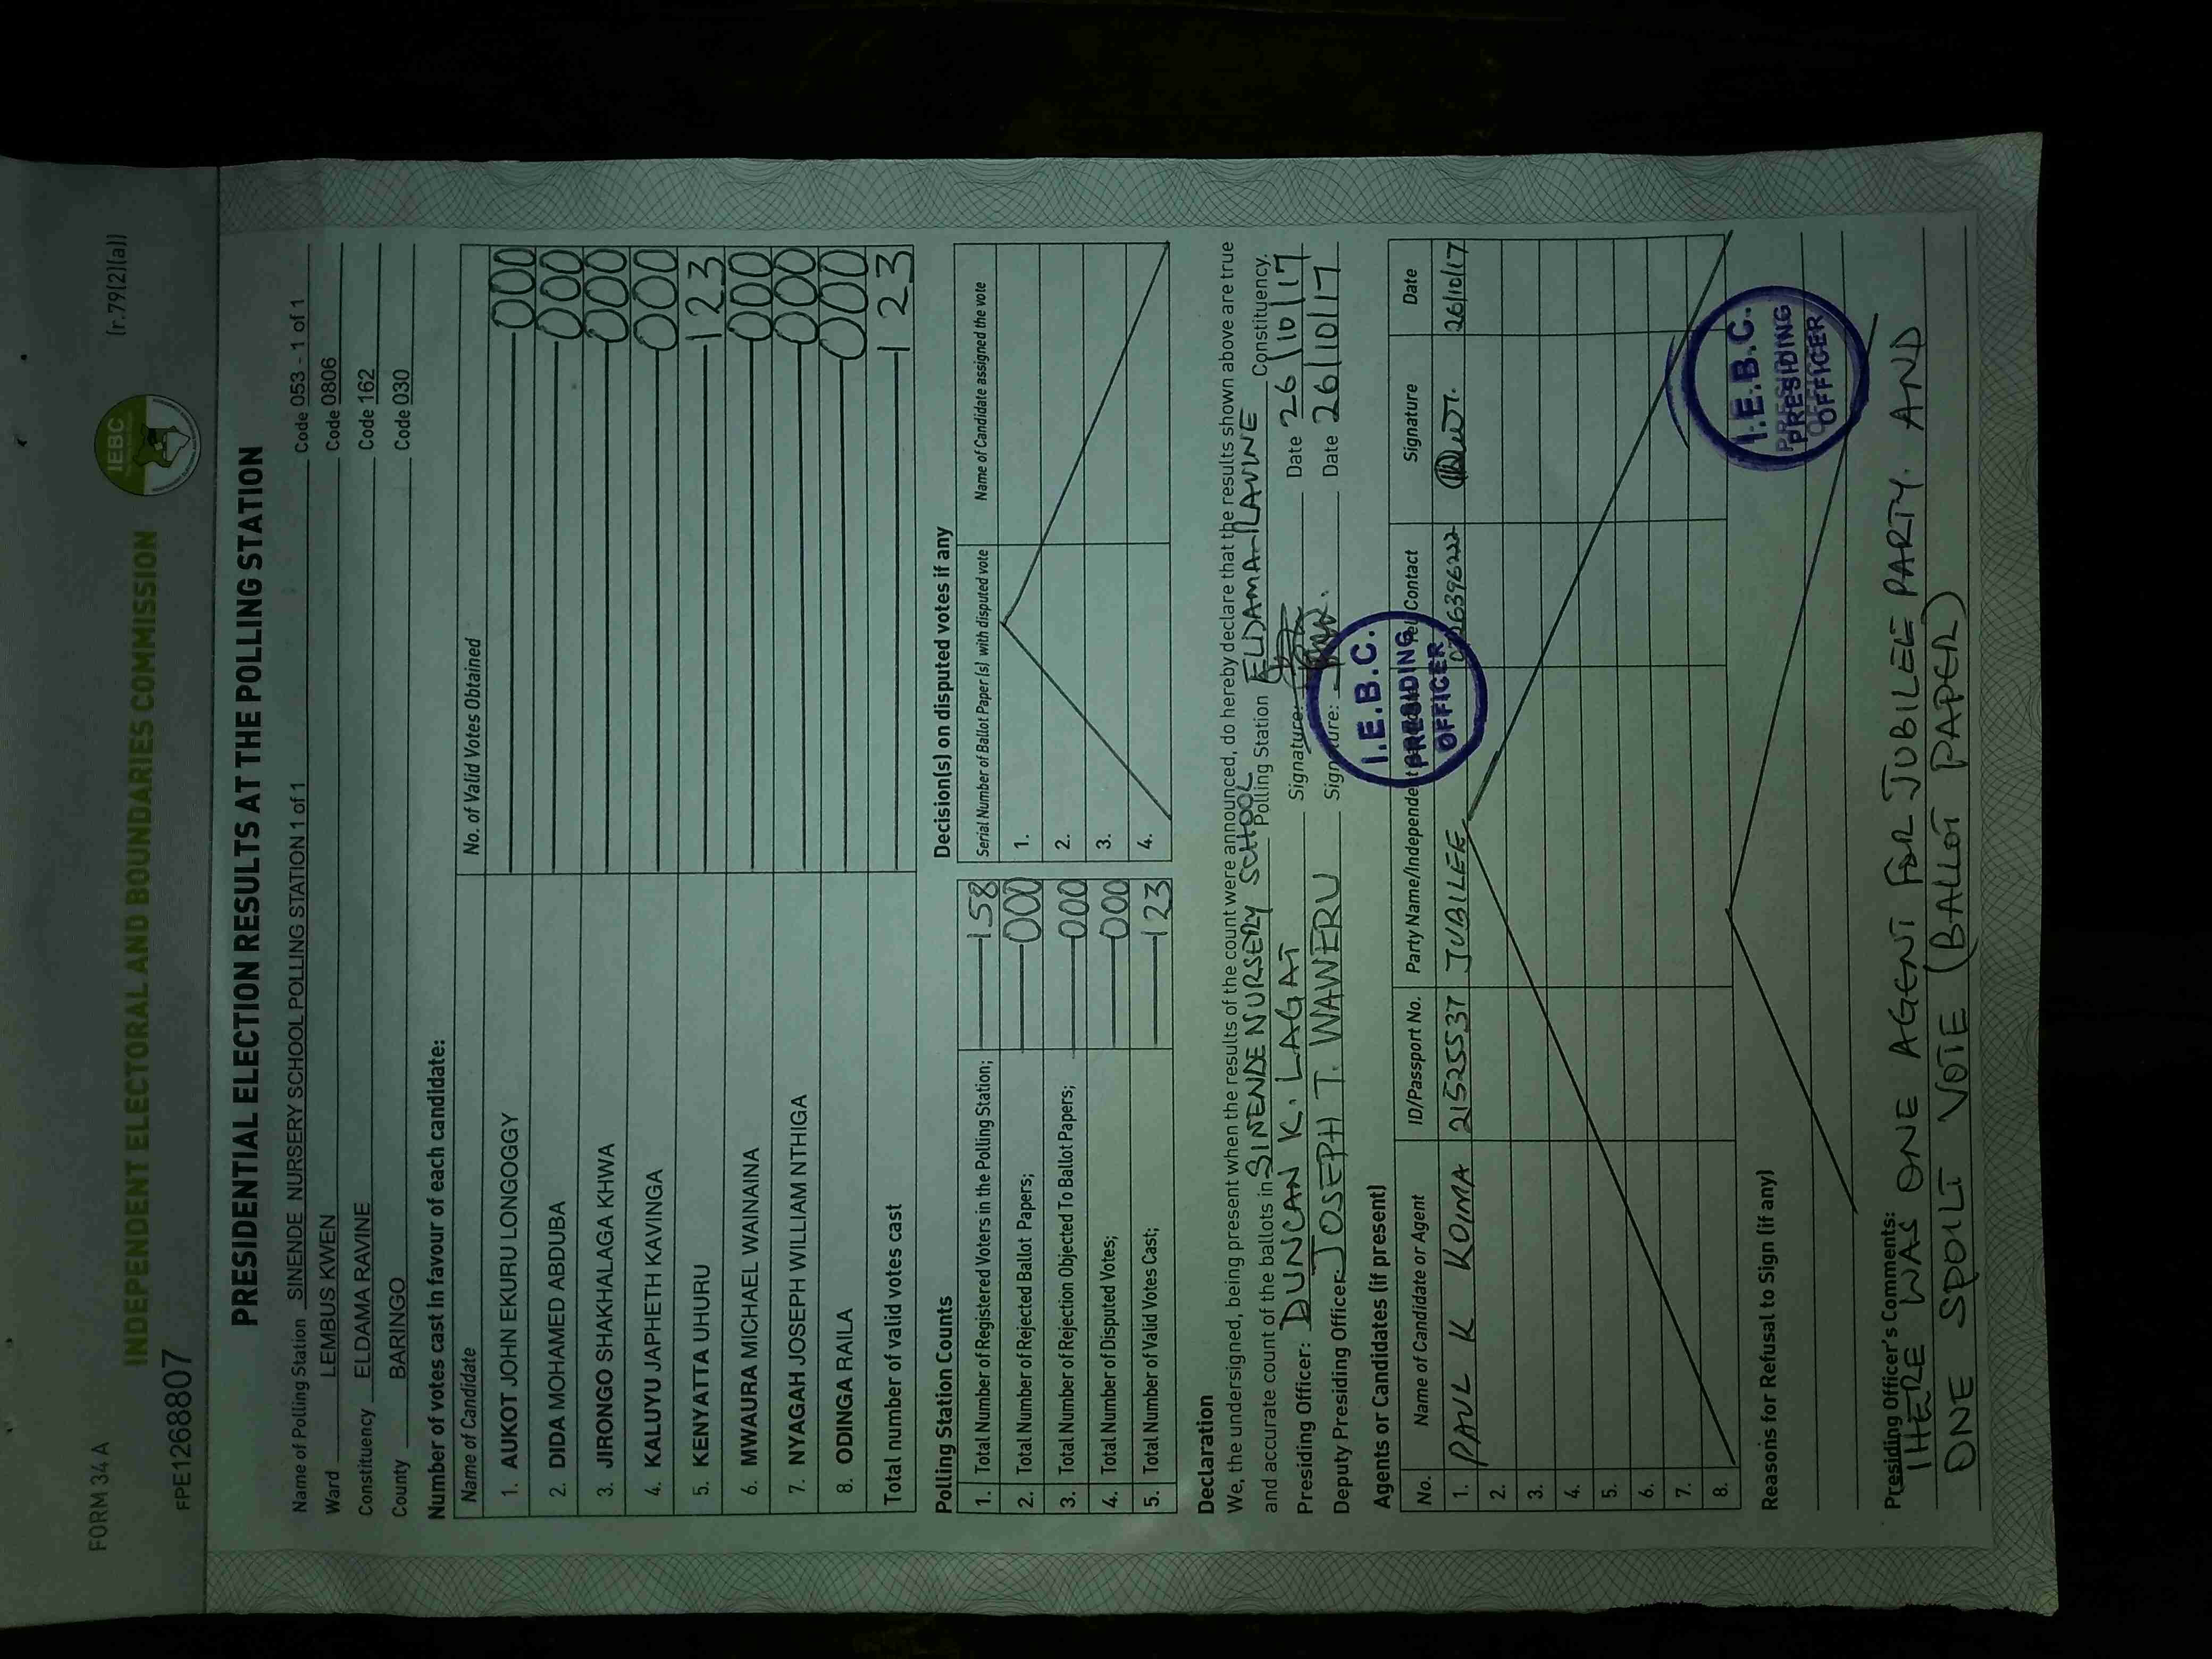 FORM 34 A
(r.79(2)(a))
IEBC
INDEPENDENT ELECTORAL AND BOUNDARIES COMMISSION
FPE1268807
PRESIDENTIAL ELECTION RESULTS AT THE POLLING STATION
Name of Polling Station SINENDE NURSERY SCHOOL POLLING STATION 1 of 1 Code 053 - 1 of 1
Ward LEMBUS KWEN Code 0806
Constituency ELDAMA RAVINE Code 162
County BARINGO Code 030
Number of votes cast in favour of each candidate:
Name of Candidate No. of Valid Votes Obtained
1. AUKOT JOHN EKURU LONGOGGY 000
2. DIDA MOHAMED ABDUBA 000
3. JIRONGO SHAKHALAGA KHWA 000
4. KALUYU JAPHETH KAVINGA 000
5. KENYATTA UHURU 123
6. MWAURA MICHAEL WAINAINA 000
7. NYAGAH JOSEPH WILLIAM NTHIGA 000
8. ODINGA RAILA 000
Total number of valid votes cast 123
Polling Station Counts
1. Total Number of Registered Voters in the Polling Station; 158
2. Total Number of Rejected Ballot Papers; 000
3. Total Number of Rejection Objected To Ballot Papers; 000
4. Total Number of Disputed Votes; 000
5. Total Number of Valid Votes Cast; 123
Decision(s) on disputed votes if any
Serial Number of Ballot Paper (s) with disputed vote Name of Candidate assigned the vote
1.
2.
3.
4.
Declaration
We, the undersigned, being present when the results of the count were announced, do hereby declare that the results shown above are true
and accurate count of the ballots in SINENDE NURSERY SCHOOL Polling Station ELDAMA RAVINE Constituency.
Presiding Officer: DUNCAN K. LAGAT Signature: Date 26/10/17
Deputy Presiding Officer: JOSEPH T. WAWERU Signature: Date 26/10/17
Agents or Candidates (if present)
No. Name of Candidate or Agent ID/Passport No. Party Name/Independent Tel. Contact Signature Date
1. PAUL K KOIMA 21525537 JUBILEE 26/10/17
2.
3.
4.
5.
6.
7.
8.
I.E.B.C.
PRESIDING
OFFICER
Reasons for Refusal to Sign (if any)
I.E.B.C.
PRESIDING
OFFICER
Presiding Officer's Comments:
THERE WAS ONE AGENT FOR JUBILEE PARTY. AND
ONE SPOILT VOTE (BALLOT PAPER)